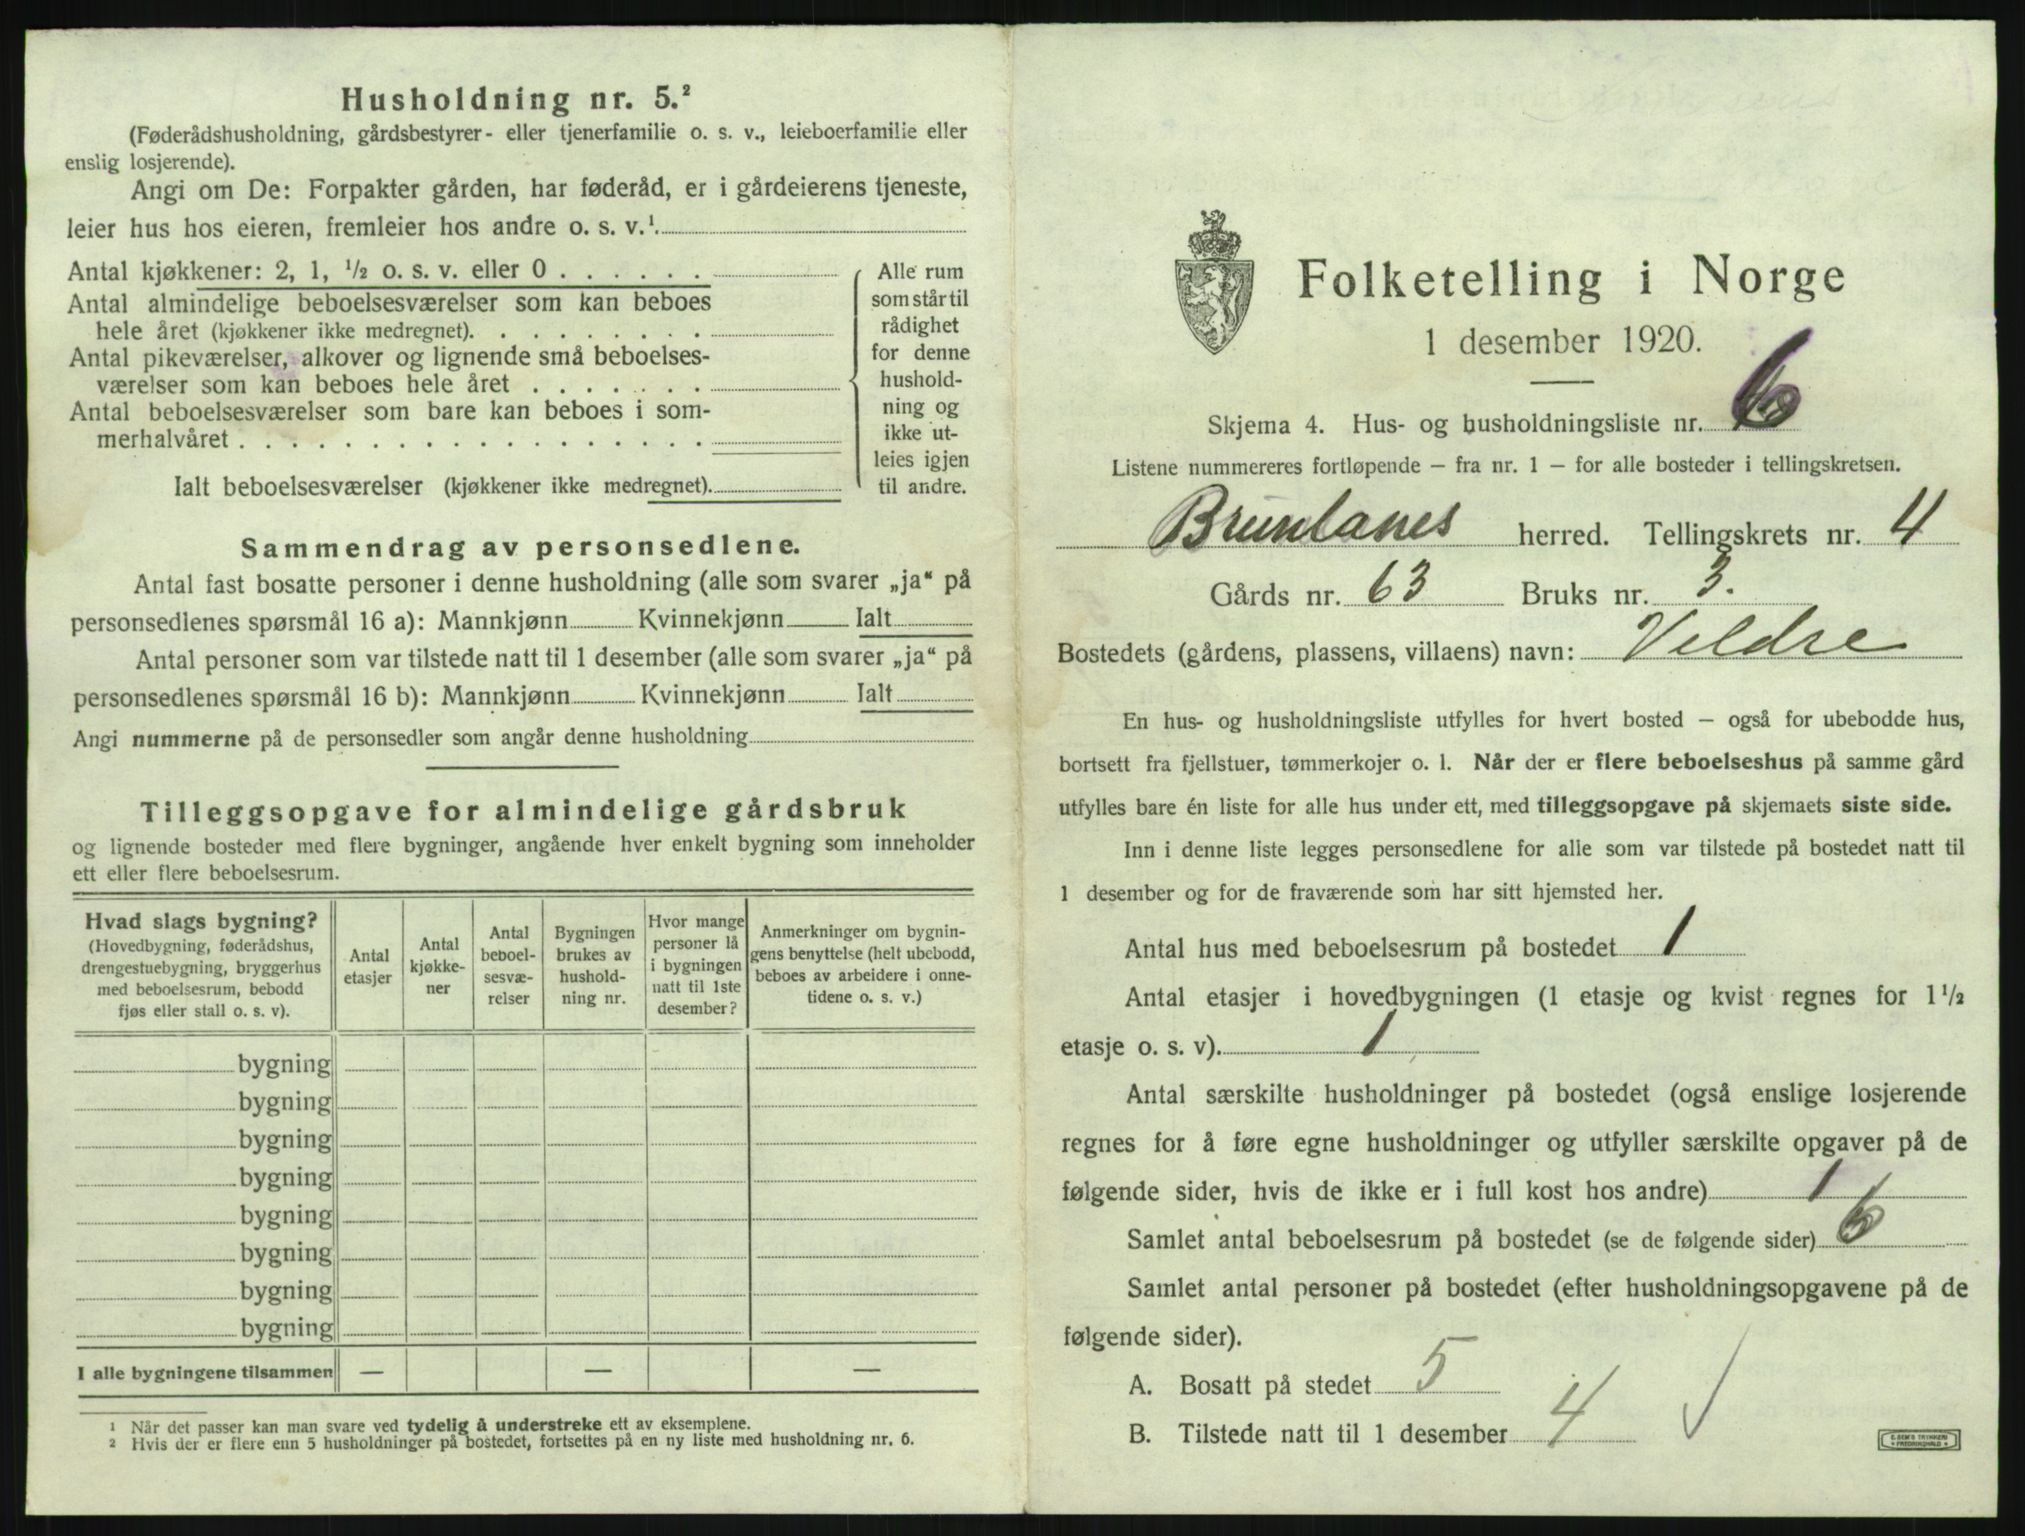 Husholdning nr. 5.²
(Føderådshusholdning, gårdsbestyrer- eller tjenerfamilie o. s. v., leieboerfamilie eller
enslig losjerende).
Angi om De: Forpakter gården, har føderåd, er i gårdeierens tjeneste,
leier hus hos eieren, fremleier hos andre o. s. v.¹
Antal kjøkkener: 2, 1, ½ o. s. v. eller 0 . . . . . .
Antal almindelige beboelsesværelser som kan beboes
hele året (kjøkkener ikke medregnet). . . . . . . . .
Antal pikeværelser, alkover og lignende små beboelses-
værelser som kan beboes hele året . . . . . . .
Antal beboelsesværelser som bare kan beboes i som-
merhalvåret . . . . . . . . . . . . . . . . . .
Ialt beboelsesværelser (kjøkkener ikke medregnet).
Alle rum
som står til
rådighet
for denne
hushold-
ning og
ikke ut-
leies igjen
til andre.
Sammendrag av personsedlene.
Antal fast bosatte personer i denne husholdning (alle som svarer „ja“ på
personsedlenes spørsmål 16 a): Mannkjønn Kvinnekjønn Ialt
Antal personer som var tilstede natt til 1 desember (alle som svarer „ja“ på
personsedlenes spørsmål 16 b): Mannkjønn Kvinnekjønn Ialt
Angi nummerne på de personsedler som angår denne husholdning
Tilleggsopgave for almindelige gårdsbruk
og lignende bosteder med flere bygninger, angående hver enkelt bygning som inneholder
ett eller flere beboelsesrum.
Hvad slags bygning?
(Hovedbygning, føderådshus,
drengestuebygning, bryggerhus
med beboelsesrum, bebodd
fjøs eller stall o. s. v).
Antal
etasjer
Antal
kjøkke-
ner
Antal
beboel-
sesvæ-
relser
Bygningen
brukes av
hushold-
ning nr.
Hvor mange
personer lå
i bygningen
natt til 1ste
desember?
Anmerkninger om bygnin-
gens benyttelse (helt ubebodd,
beboes av arbeidere i onne-
tidene o. s. v.)
bygning
bygning
bygning
bygning
bygning
bygning
bygning
bygning
I alle bygningene tilsammen — — —
¹ Når det passer kan man svare ved tydelig å understreke ett av eksemplene.
² Hvis der er flere enn 5 husholdninger på bostedet, fortsettes på en ny liste med husholdning nr. 6.
Folketelling i Norge
1 desember 1920.
Skjema 4. Hus- og husholdningsliste nr. 6
Listene nummereres fortløpende — fra nr. 1 — for alle bosteder i tellingskretsen.
Brunlanes herred. Tellingskrets nr. 4
Gårds nr. 63 Bruks nr. 3.
Bostedets (gårdens, plassens, villaens) navn: Veldre
En hus- og husholdningsliste utfylles for hvert bosted — også for ubebodde hus,
bortsett fra fjellstuer, tømmerkojer o. l. Når der er flere beboelseshus på samme gård
utfylles bare én liste for alle hus under ett, med tilleggsopgave på skjemaets siste side.
Inn i denne liste legges personsedlene for alle som var tilstede på bostedet natt til
1 desember og for de fraværende som har sitt hjemsted her.
Antal hus med beboelsesrum på bostedet 1
Antal etasjer i hovedbygningen (1 etasje og kvist regnes for 1½
etasje o. s. v). 1
Antal særskilte husholdninger på bostedet (også enslige losjerende
regnes for å føre egne husholdninger og utfyller særskilte opgaver på de
følgende sider, hvis de ikke er i full kost hos andre) 1
Samlet antal beboelsesrum på bostedet (se de følgende sider) 6
Samlet antal personer på bostedet (efter husholdningsopgavene på de
følgende sider).
A. Bosatt på stedet 5
B. Tilstede natt til 1 desember 4
E. SEM'S TRYKKERI
FREDRIKSHALD